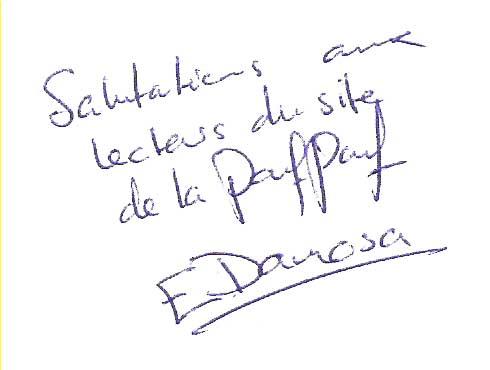 Salutations aux
lecteurs du site
de la PoufPouf
E. Damosa